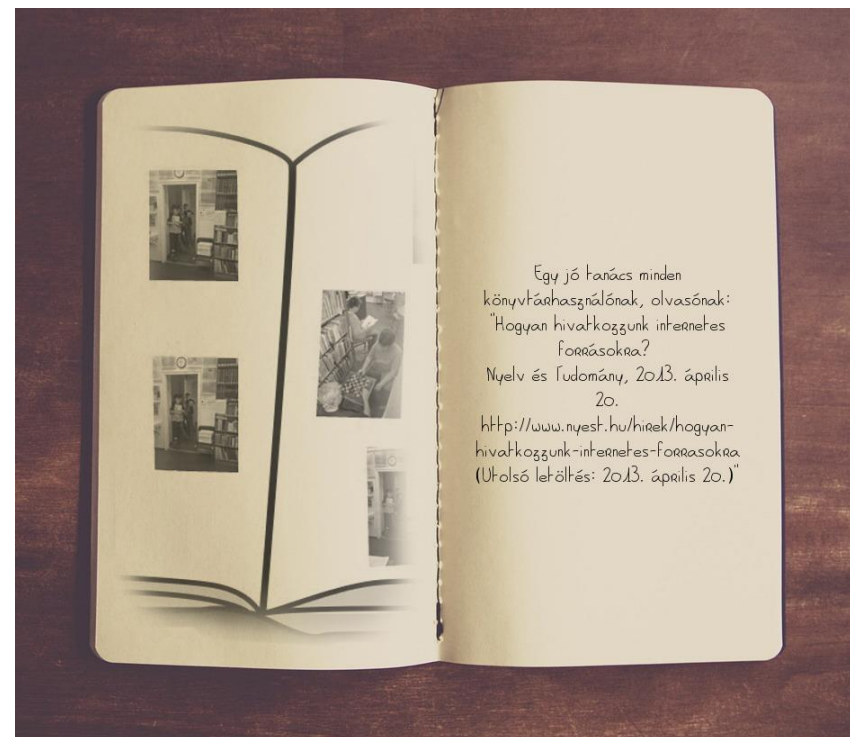 Egy jó tanács minden
könyvtárhasználónak, olvasónak:
"Hogyan hivatkozzunk internetes
forrásokra?
Nyelv és Tudomány, 2013. április
20.
http://www.nyest.hu/hirek/hogyan-
hivatkozzunk-internetes-forrasokra
(Utolsó letöltés: 2013. április 20.)"